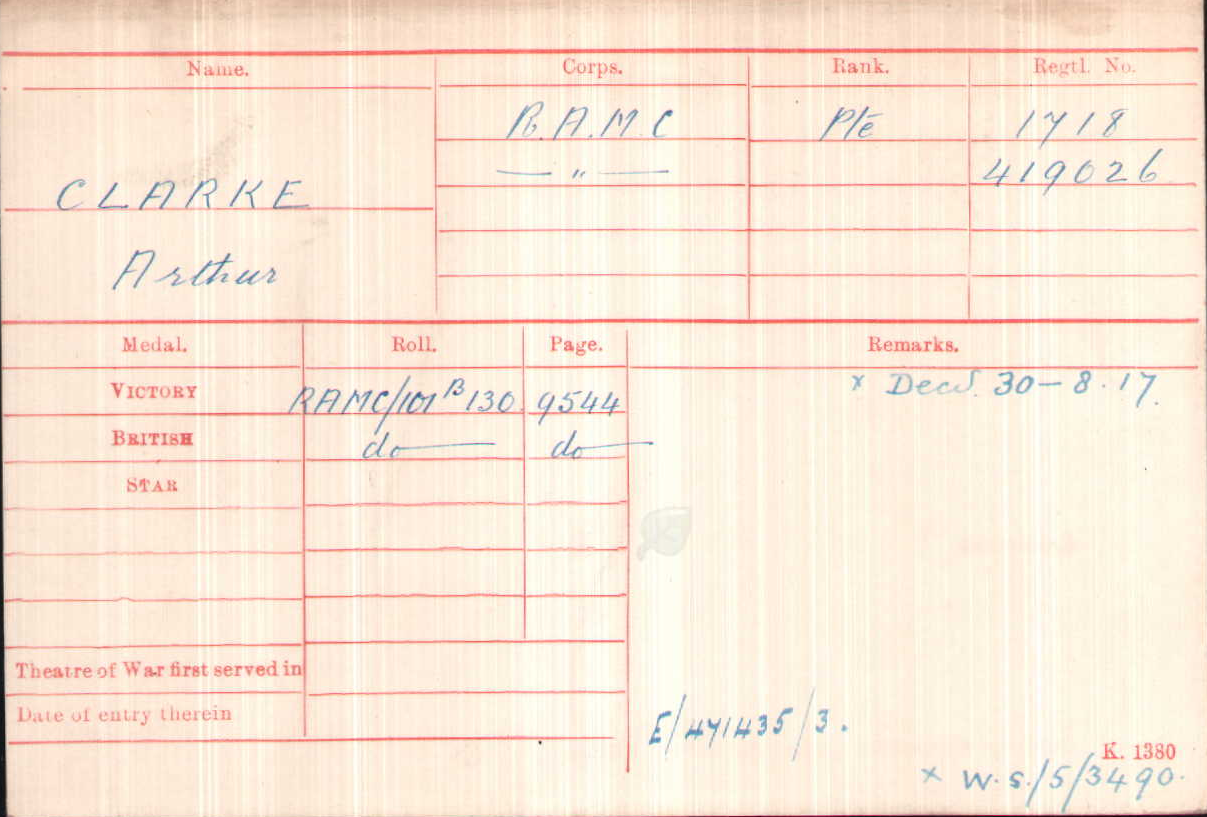 Name. Corps. Rank. Regtl. No.
R.A.M.C Pte 1718
— " — 419026
CLARKE
Arthur
Medal. Roll. Page. Remarks.
VICTORY RAMC/101 B 130. 9544 x Decd. 30-8.17.
BRITISH do do
STAR
Theatre of War first served in
Date of entry therein
E/471435/3.
K. 1380
x W.S./5/3490.